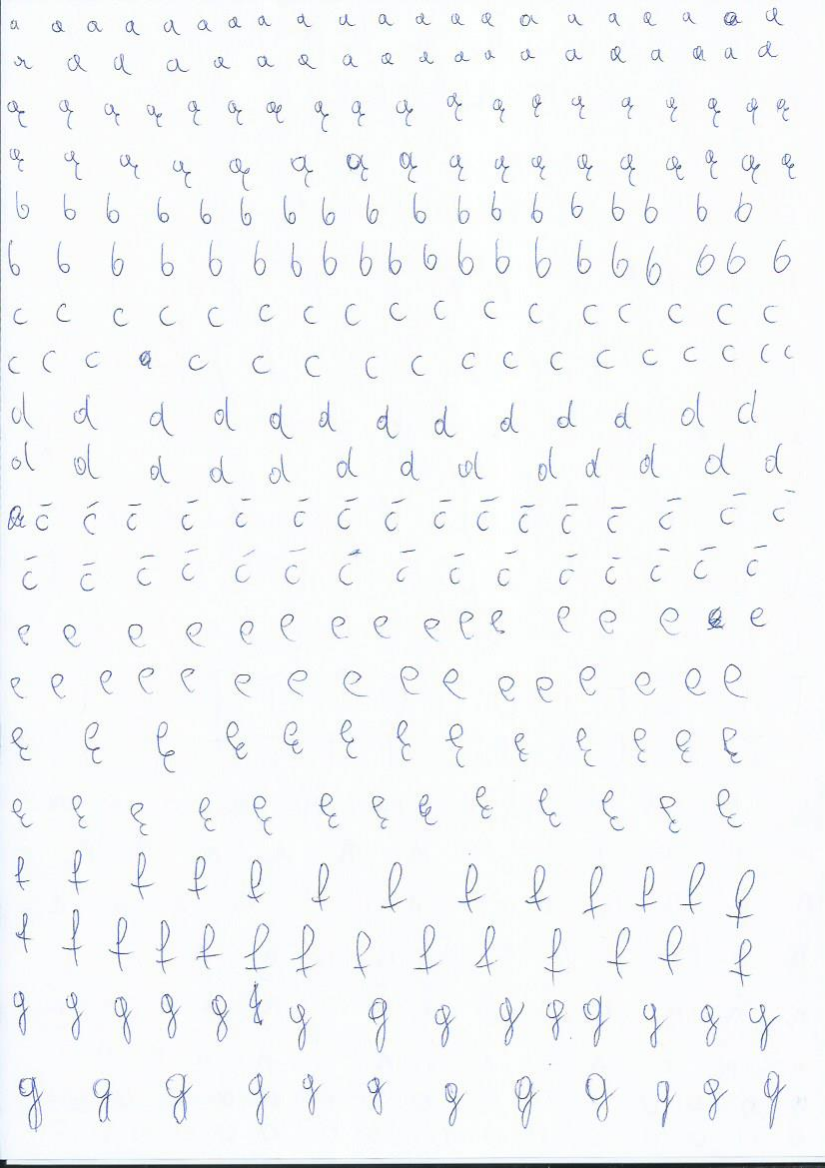 a a a a a a a a a a a a a a a a a a a a a
a a a a a a a a a a a a a a a a a a a
ą ą ą ą ą ą ą ą ą ą ą ą ą ą ą ą ą ą ą
ą ą ą ą ą ą ą ą ą ą ą ą ą ą ą ą ą
b b b b b b b b b b b b b b b b b b
b b b b b b b b b b b b b b b b b b b b
c c c c c c c c c c c c c c c c c
c c c c c c c c c c c c c c c c c
d d d d d d d d d d d d d
d d d d d d d d d d d d d
ć ć ć ć ć ć ć ć ć ć ć ć ć ć ć ć
ć ć ć ć ć ć ć ć ć ć ć ć ć ć ć
e e e e e e e e e e e e e e e
e e e e e e e e e e e e e e e e
ę ę ę ę ę ę ę ę ę ę ę ę ę
ę ę ę ę ę ę ę ę ę ę ę ę ę
f f f f f f f f f f f f f
f f f f f f f f f f f f f f
g g g g g g g g g g g g g g
g g g g g g g g g g g g